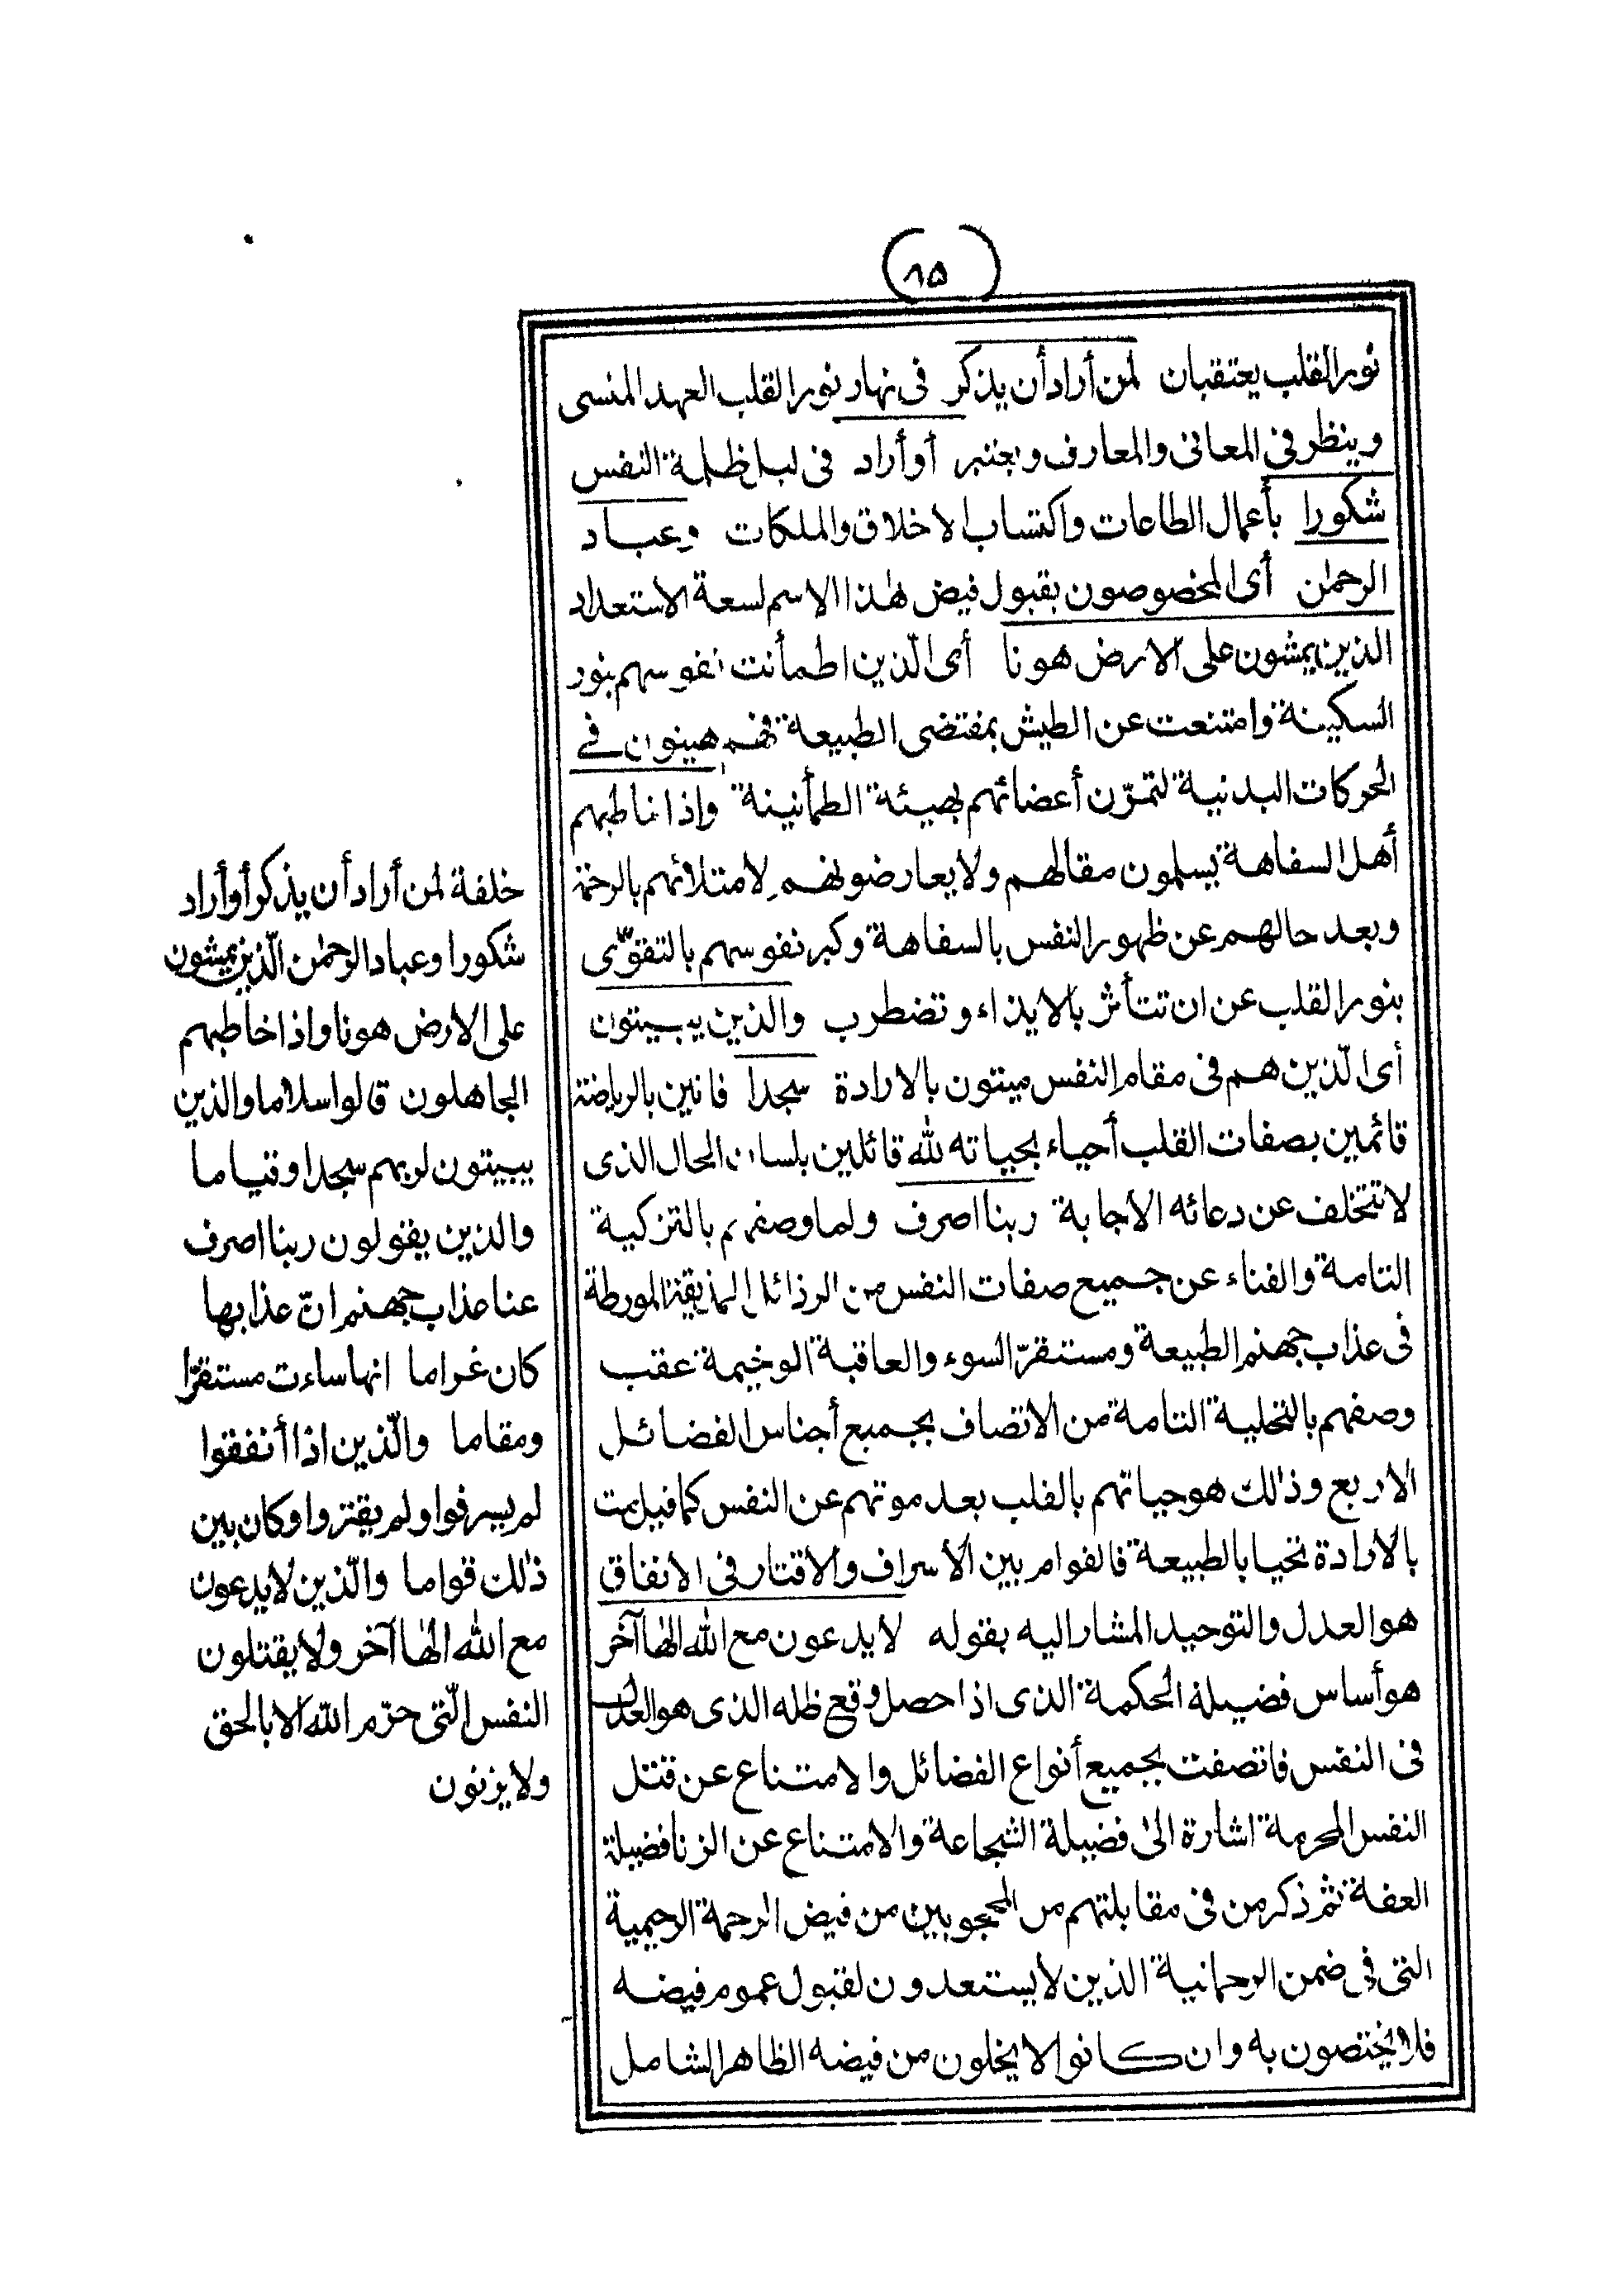 (٨٥)
نور القلب يعتقبان لمن أراد أن يذكر فى نهار نور القلب العهد المنسى
وينظر فى المعانى والمعارف ويعتبر أو أراد فى ليل ظلمة النفس
شكورا بأعمال الطاعات واكتساب الاخلاق والملكات وعباد
الرحمٰن أى المخصوصون بقبول فيض هٰذا الاسم لسعة الاستعداد
الذين يمشون على الارض هونا أى الّذين اطمأنت نفوسهم بنور
السكينة وامتنعت عن الطيش بمقتضى الطبيعة فهم هينون فے
الحركات البدنية لتمرّن أعضائهم بهيئة الطمأنينة واذا خاطبهم
أهل السفاهة يسلمون مقالهم ولا يعارضونهم لامتلائهم بالرحمة
وبعد حالهم عن ظهور النفس بالسفاهة وكبر نفوسهم بالتقوّى
بنور القلب عن ان تتأثر بالايذاء وتضطرب والذين يبيتون
أى الّذين هم فى مقام النفس ميتون بالارادة سجدا فانين بالرياضة
قائمين بصفات القلب أحياء بحياته لله قائلين بلسان الحال الذى
لا تتخلف عن دعائه الاجابة ربنا اصرف ولما وصفهم بالتزكية
التامة والفناء عن جميع صفات النفس من الرذائل المذيقة المورطة
فى عذاب جهنم الطبيعة ومستقرّ السوء والعاقبة الوخيمة عقب
وصفهم بالتحلية التامة من الاتصاف بجميع أجناس الفضائل
الاربع وذٰلك هو حياتهم بالقلب بعد موتهم عن النفس كما قيل مت
بالارادة تحيا بالطبيعة فالقوام بين الاسراف والاقتار فى الانفاق
هو العدل والتوحيد المشار اليه بقوله لا يدعون مع الله الٰها آخر
هو أساس فضيلة الحكمة الذى اذا حصل وقع ظله الذى هو العدل
فى النفس فاتصفت بجميع أنواع الفضائل والامتناع عن قتل
النفس المحرمة اشارة الى فضيلة الشجاعة والامتناع عن الزنا فضيلة
العفة ثم ذكر من فى مقابلتهم من المحجوبين من فيض الرحمة الرحيمية
التى فى ضمن الرحمانية الذين لا يستعدون لقبول عموم فيضه
فلا يختصون به وان كانوا لا يخلون من فيضه الظاهر الشامل
خلفة لمن أراد أن يذكر أو أراد
شكورا وعباد الرحمٰن الّذين يمشون
على الارض هونا واذا خاطبهم
الجاهلون قالوا سلاما والذين
يبيتون لربهم سجدا وقياما
والذين يقولون ربنا اصرف
عنا عذاب جهنم انّ عذابها
كان غراما انها ساءت مستقرّا
ومقاما والّذين اذا أنفقوا
لم يسرفوا ولم يقتروا وكان بين
ذٰلك قواما والّذين لا يدعون
مع الله الٰها آخر ولا يقتلون
النفس الّتى حرّم الله الا بالحق
ولا يزنون